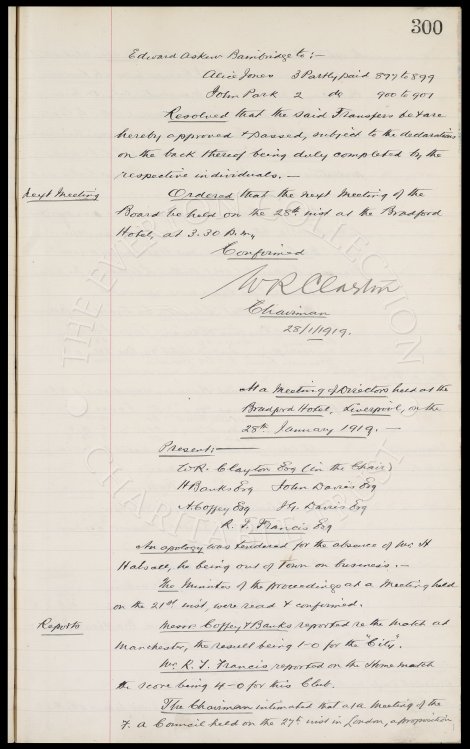 300
Edward Askew Bainbridge to :-
Alice Jones 3 Partly paid 897 to 899
John Park 2 do 900 to 901
Resolved that the said Transfers be & are
hereby approved & passed, subject to the declarations
on the back thereof being duly completed by the
respective individuals. —
Next Meeting
Ordered that the next Meeting of the
Board be held on the 28th inst at the Bradford
Hotel, at 3.30 p.m.
Confirmed
W R Clayton
Chairman
28/1/1919.
At a Meeting of Directors held at the
Bradford Hotel, Liverpool, on the
28th January 1919. —
Present:-
W.R. Clayton Esq (in the Chair)
H Banks Esq John Davies Esq
A. Coffey Esq J G. Davies Esq
R. F. Francis Esq
An apology was tendered for the absence of Mr H
Halsall, he being out of Town on business. —
The Minutes of the proceedings at a Meeting held
on the 21st inst, were read & confirmed.
Reports
Messrs Coffey & Banks reported re the match at
Manchester, the result being 1-0 for the "City".
Mr. R. F. Francis, reported on the Home match
the score being 4-0 for this Club.
The Chairman intimated that at a Meeting of the
F. A Council held on the 27th inst in London, a proposition
THE EVERTON COLLECTION
CHARITABLE TRUST